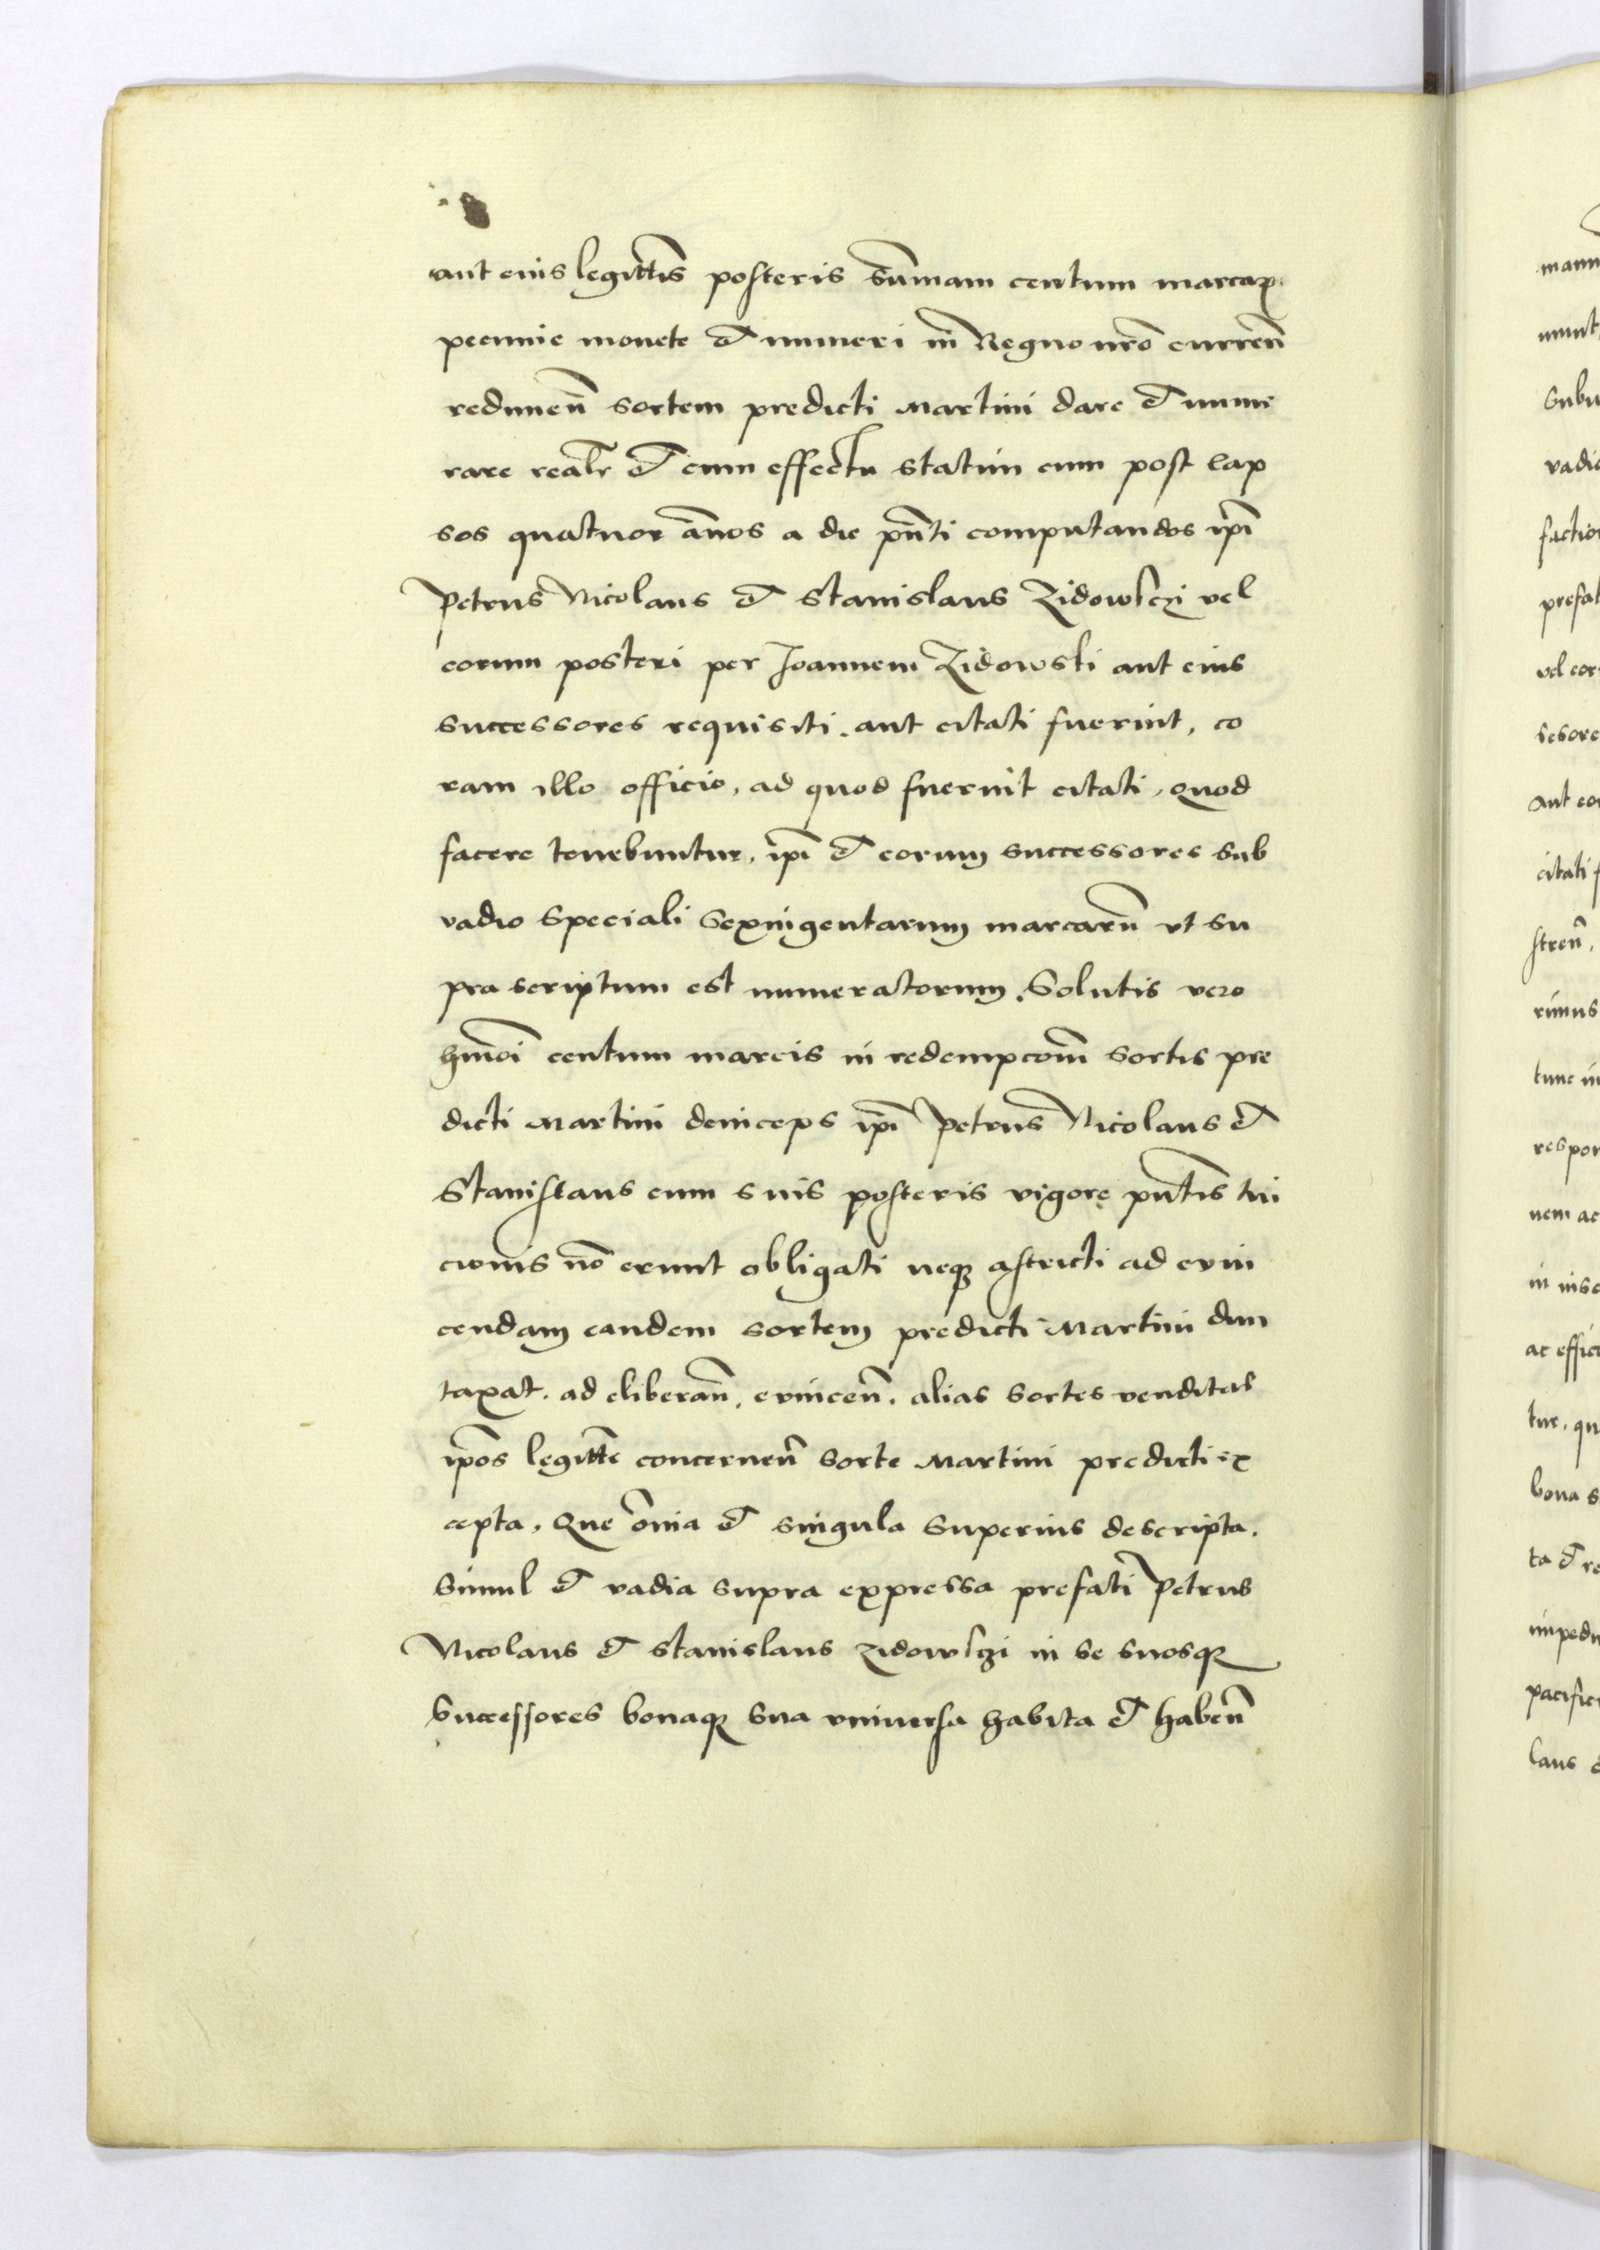 aut eius legittis posteris sum̄mam centum marcaꝝ
pecunie monete et numeri in Regno nr̄o curren̄
redimen̄ sortem predicti Martini dare et nume
rare realr̄ et cum effectu statim cum post lap
sos quatuor an̄os a die pn̄ti computandos ip̄i
Petrus Nicolaus et Stanislaus Zidowsczi vel
eorum posteri per Joannem Zidowski aut eius
successores requisiti. aut citati fuerint, co
ram illo officio, ad quod fuerint citati, Quod
facere tenebuntur, ip̄i et eorum successores sub
vadio speciali sexingentarum marcarū ut su
pra scriptum est numeratorum. Solutis vero
hmōi centum marcis in redempcom̄ sortis pre
dicti Martini deinceps ip̄i Petrus Nicolaus et
Stanislaus cum suis posteris vigore pn̄tis tui
cionis nō erunt obligati neqꝫ astricti ad evin
cendam eandem sortem predicti Martini dun
taxat. ad eliberan̄, evincen̄. alias sortes venditas
ip̄os legitt̄e concernen̄ sorte Martini predicti ex
cepta, Que om̄ia et singula superius descripta.
simul et vadia supra expressa prefati Petrus
Nicolaus et Stanislaus Zidowsczi in se suosqꝫ
successores bonaqꝫ sua universa habita et haben̄
mann
munt
Subu
vadio
faction
prefat
vel eor
sesore
aut eo
citati f
stren̄,
rimus
tunc in
respon
nem ac
in insc
ac effic
tur, qu
bona s
ta et re
impedi
pacific
laus e